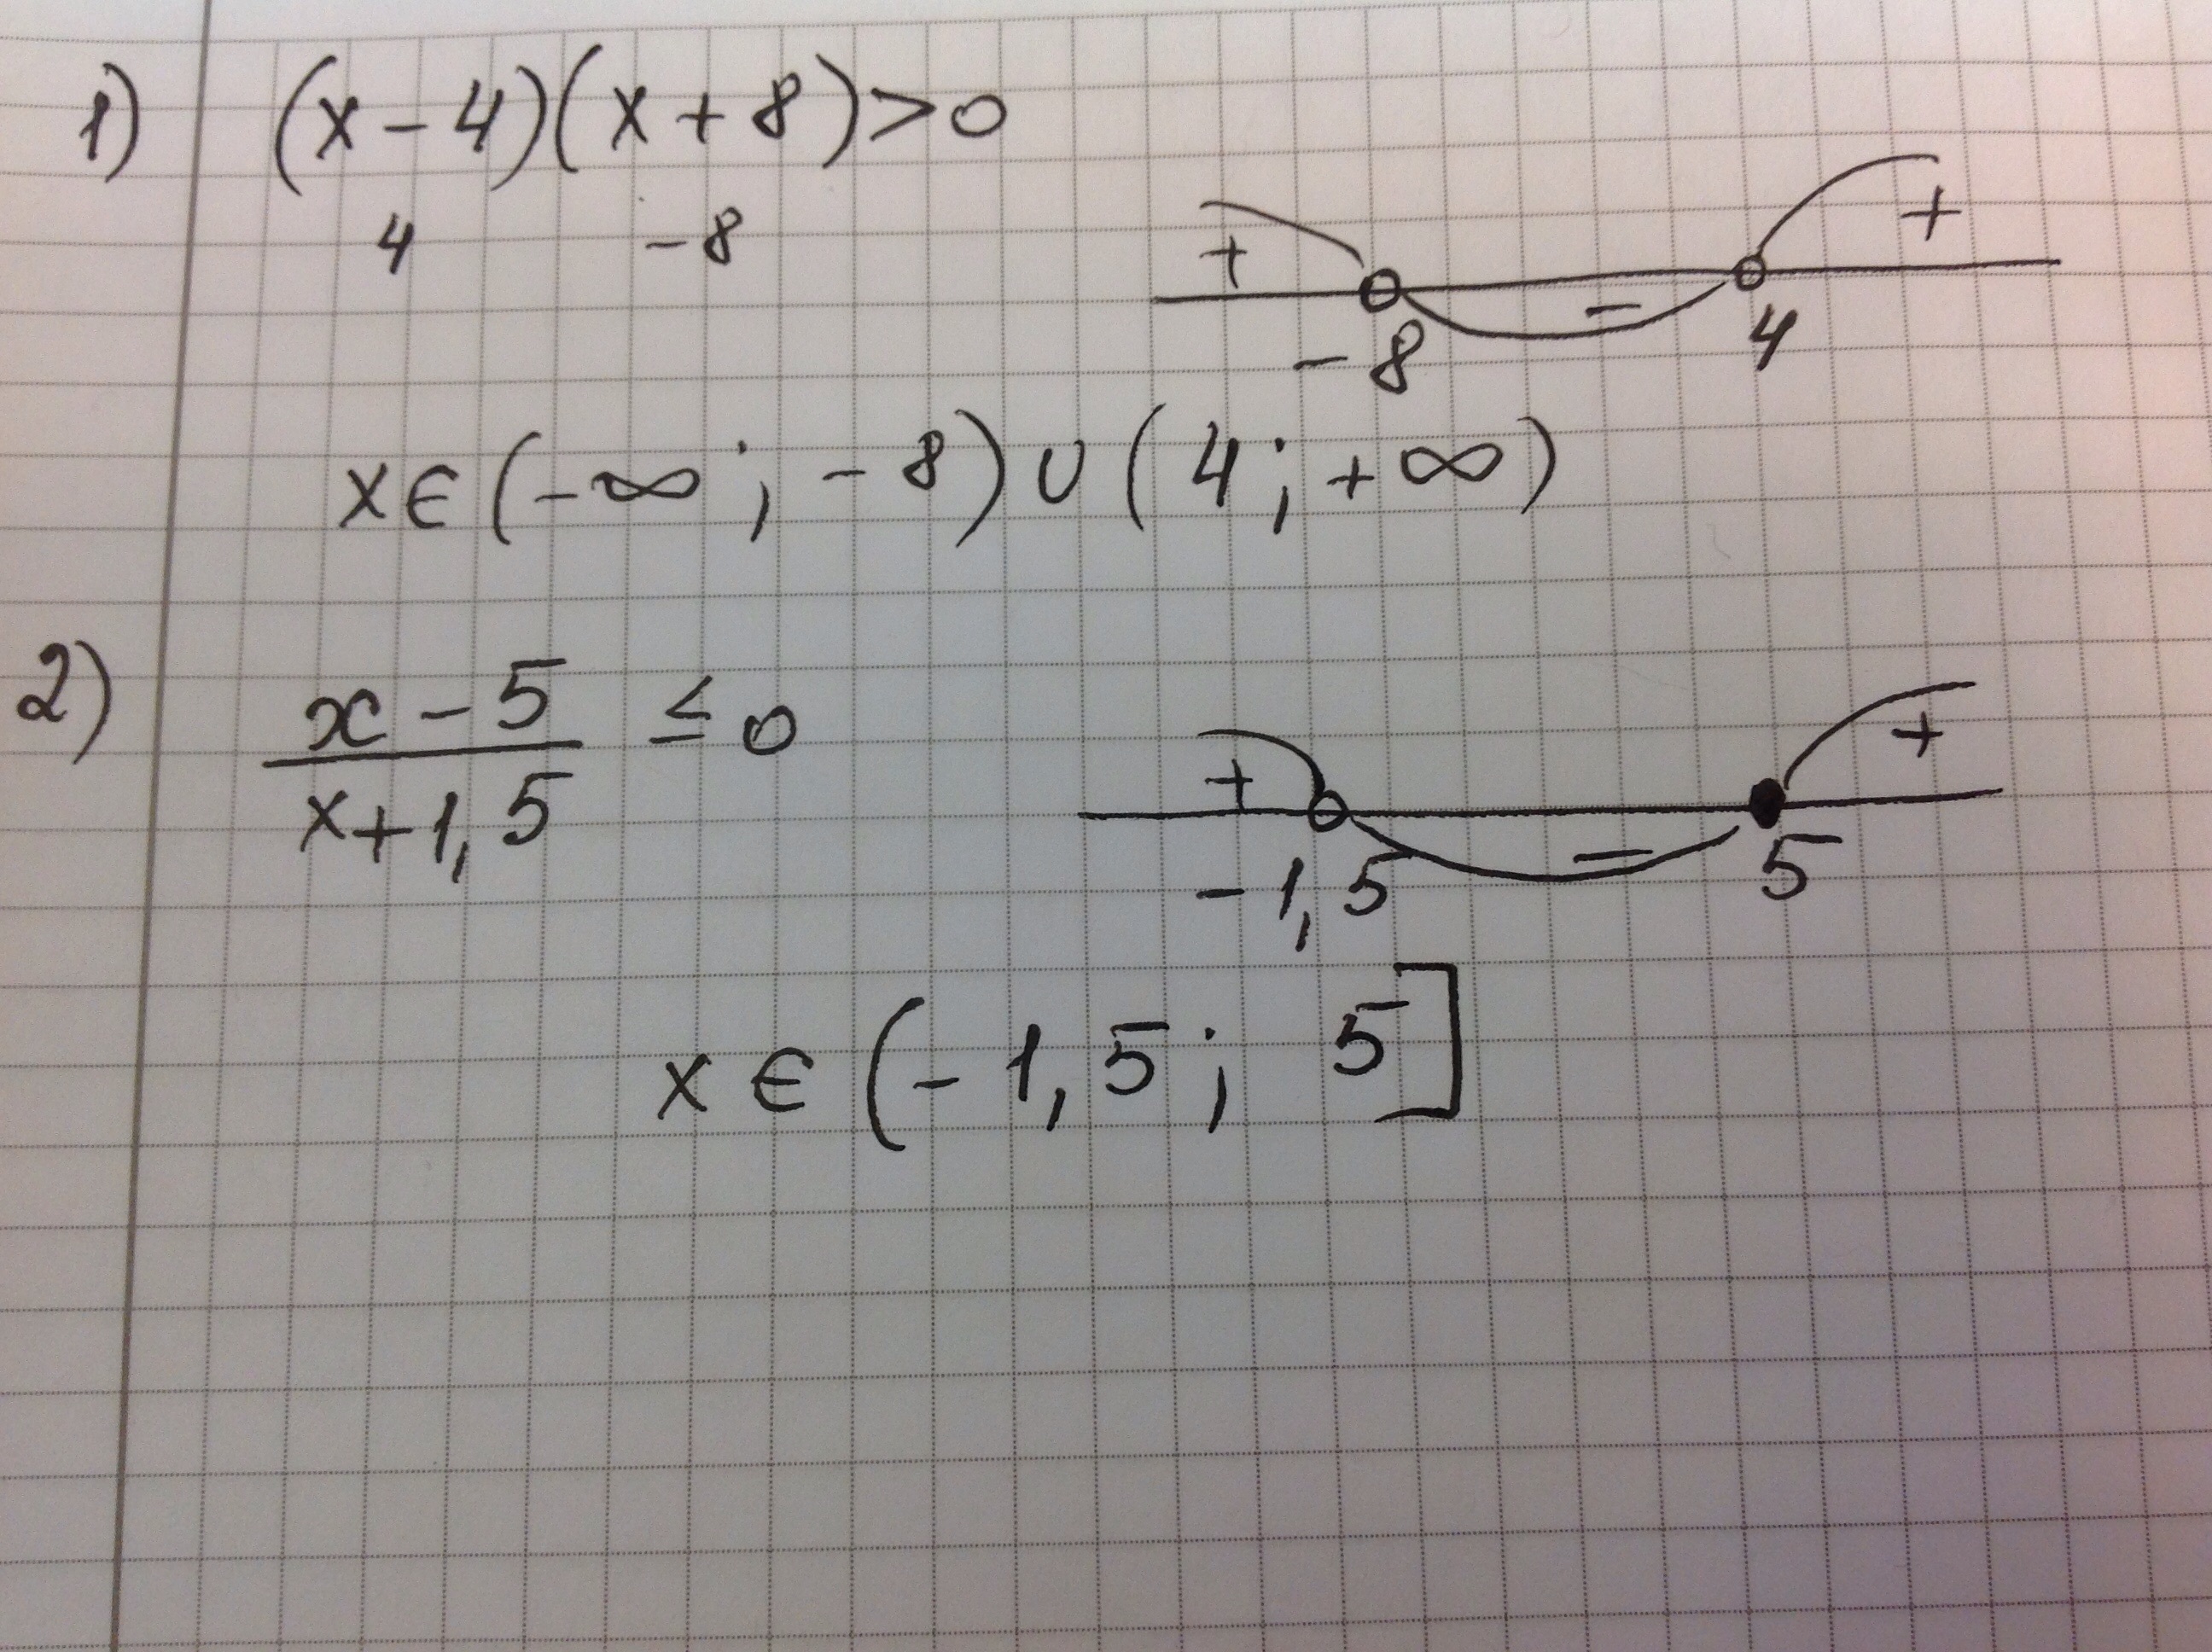 1) (x-4)(x+8)>0
4 -8
+ - +
-8 4
x∈(-∞; -8)∪(4; +∞)
2) x-5/x+1,5 ≤ 0
+ - +
-1,5 5
x∈(-1,5; 5]